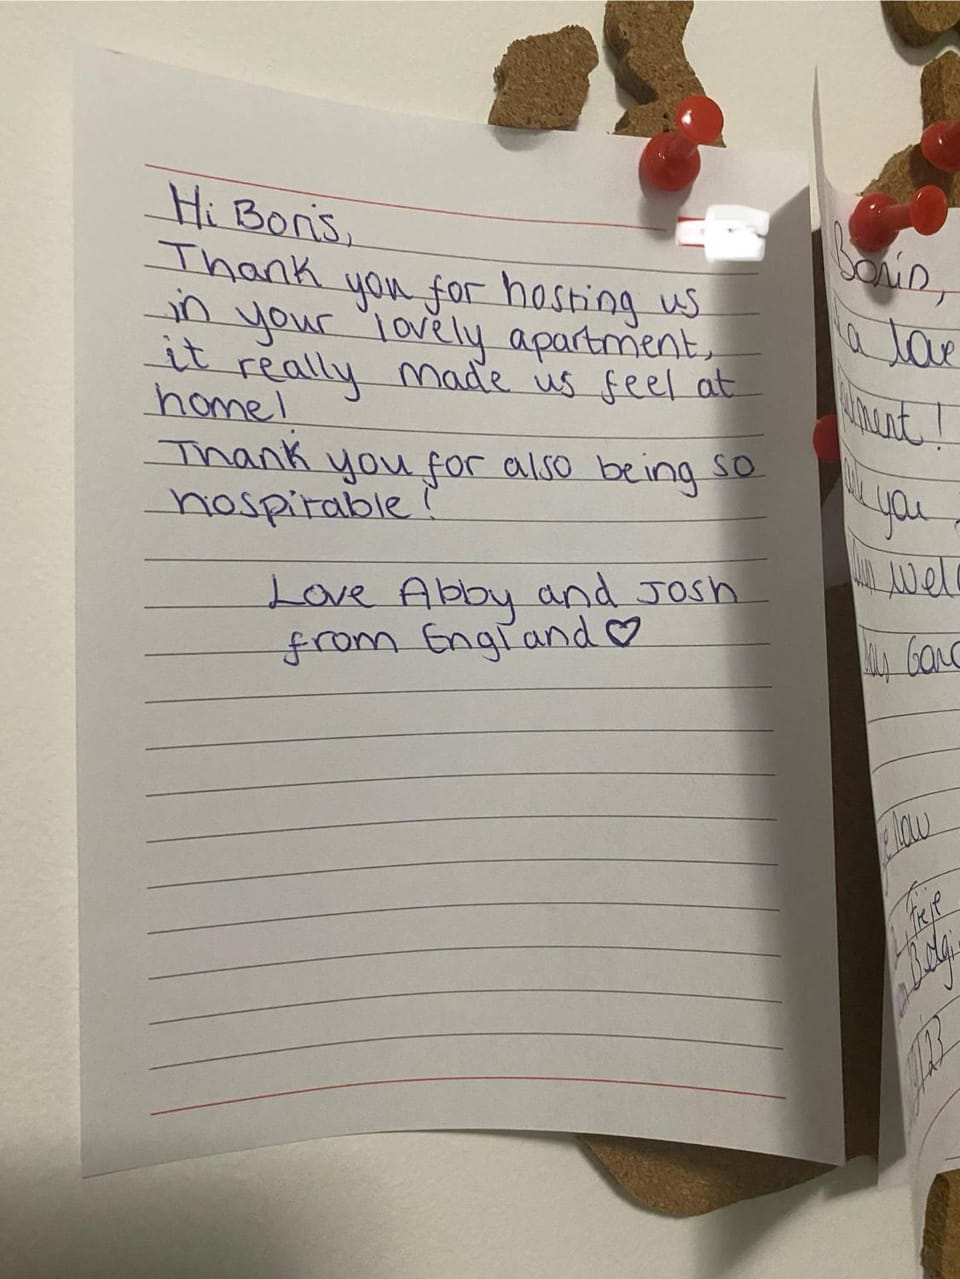 Hi Boris,
Thank you for hosting us
in your lovely apartment,
it really made us feel at
home!
Thank you for also being so
hospitable!
Love Abby and Josh
from England♡
Borin,
a love
you
wel
Belgi